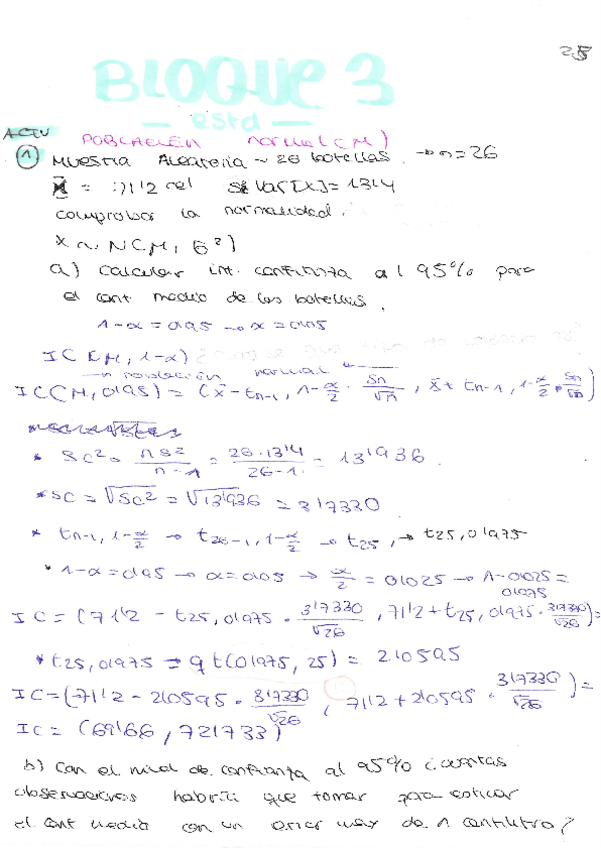 25
BLOQUE 3
— estd —
ACTV
POBLACIÓN normal (M)
① Muestra Aleatoria ~ 26 botellas. → n=26
x̄ = 71'2 cl Var[X] = 13'4
comprobar la normalidad.
X ~ N(M, σ²)
a) calcular int. confianza al 95% para
el cont medio de las botellas.
1-α = 0'95 → α = 0'05
IC (M, 1-α)
→ población normal
IC(M, 0'95) = (x̄ - tn-1, 1-α/2 · Sn/√n, x̄ + tn-1, 1-α/2 · Sn/√n)
* Sc² = ns²/n-1 = 26·13'4/26-1 = 13'936.
* Sc = √Sc² = √13'936 = 3'7330
* tn-1, 1-α/2 → t26-1, 1-α/2 → t25, → t25, 0'975
* 1-α = 0'95 → α = 0'05 → α/2 = 0'025 → 1-0'025 =
0'975
IC = (71'2 - t25, 0'975 · 3'7330/√26, 71'2 + t25, 0'975 · 3'7330/√26) =
* t25, 0'975 = qt(0'975, 25) = 2'0595
IC = (71'2 - 2'0595 · 3'7330/√26, 71'2 + 2'0595 · 3'7330/√26) =
IC = (69'66, 72'1733)
b) Con el nivel de confianza al 95% ¿cuantas
observaciones habría que tomar para estimar
el cont medio con un error max de 1 centilitro?